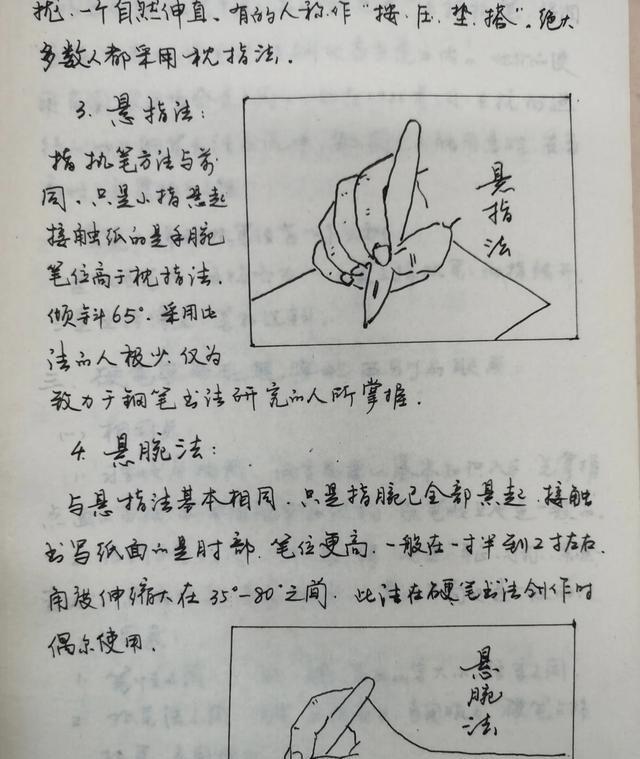 扰、一个自然伸直、有的人称作“按、压、垫、搭”。绝大
多数人都采用枕指法.
3. 悬指法：
指执笔方法与前
同、只是小指悬起
接触纸的是手腕
笔位高于枕指法.
倾斜65°. 采用此
法的人极少、仅为
致力于钢笔书法研究的人所掌握.
悬指法
4. 悬腕法：
与悬指法基本相同、只是指腕已全部悬起、接触
书写纸面的是肘部、笔位更高、一般在一寸半到2寸左右.
角度伸缩大在35°-80°之间. 此法在硬笔书法创作时
偶尔使用.
悬腕法